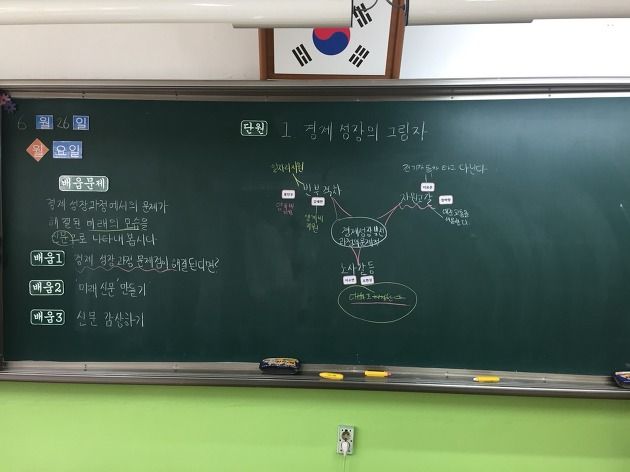 6 월 26 일
월 요일
단원 1. 경제 성장의 그림자
배움문제
경제 성장과정에서의 문제가
해결된 미래의 모습을
신문으로 나타내 봅시다.
배움1 경제 성장 과정 문제점이 해결된다면?
배움2 '미래 신문' 만들기
배움3 신문 감상하기
일자리지원
빈부격차
생계비
지원
타고 다닌다.
자원고갈
경제성장
과정의문제점
노사갈등